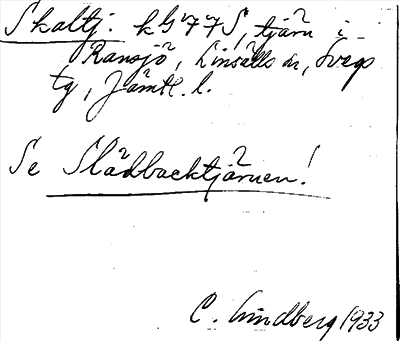 Skaltj: kG77S, tjärn i
Ransjö, Linsälls sn, Svegs
tg, Jämtl. l.
Se Slädbacktjärnen!
C. Lindberg 1933